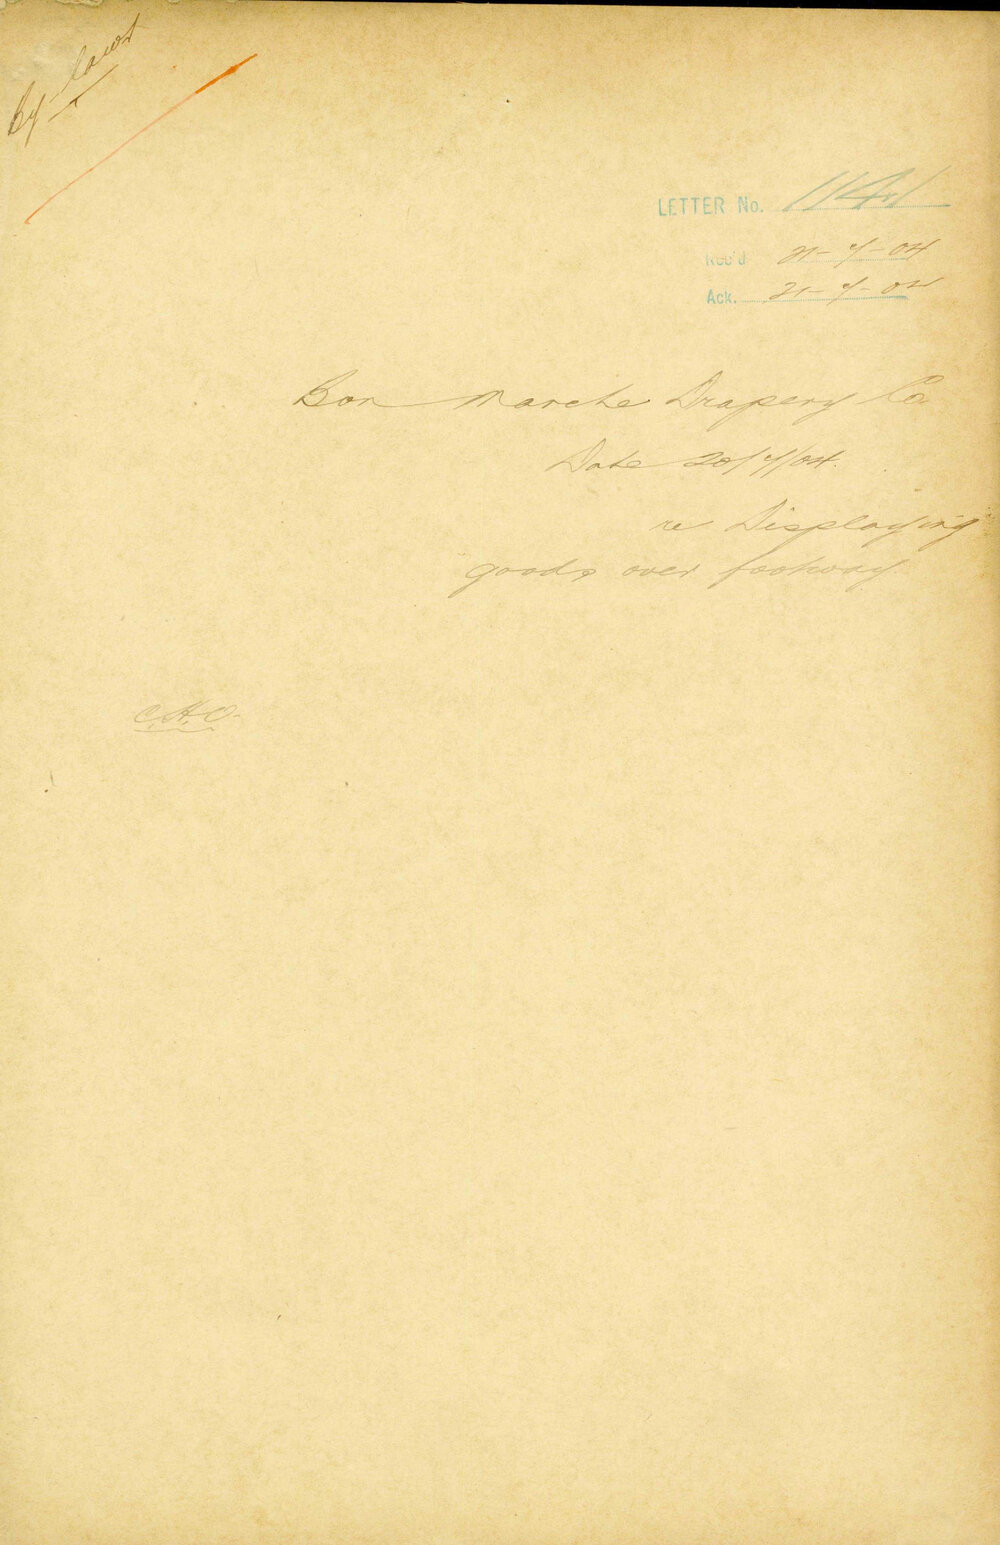 By-laws
LETTER No. 1141
Rec'd 21-7-04
Ack. 21-7-04
Bon Marche Drapery Co.
Date 20/7/04.
re Displaying
goods over footway
C.H.O.